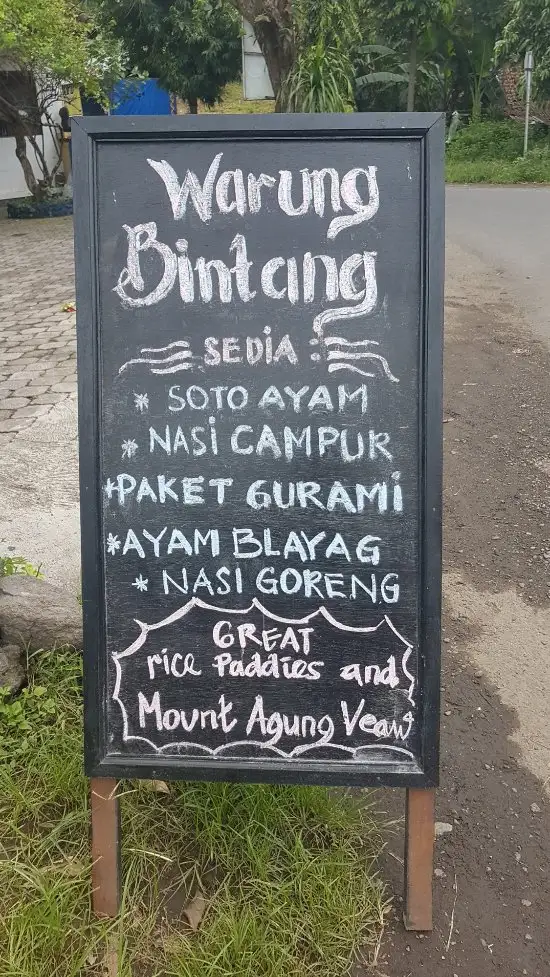 Warung
Bintang
SEDIA :
* SOTO AYAM
* NASI CAMPUR
* PAKET GURAMI
* AYAM BLAYAG
* NASI GORENG
GREAT
rice Paddies and
Mount Agung Veaw